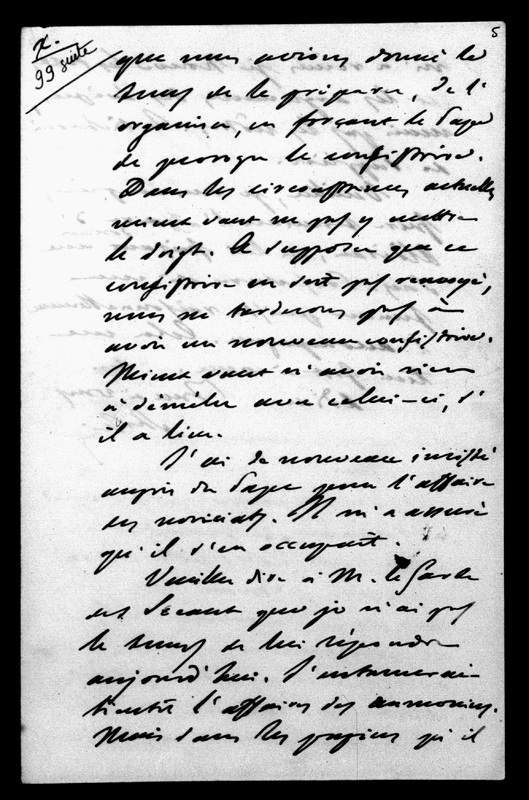 x.
99 suite
5
que nous avions donné le
temps de le préparer, de l'
organiser, en forçant le Pape
de proroger le consistoire.
Dans les circonstances actuelles
mieux vaut ne pas y mettre
le doigt. A supposer que ce
consistoire ne soit pas renvoyé,
nous ne tarderons pas à
avoir un nouveau consistoire.
Mieux vaut n'avoir rien
à démêler avec celui-ci, s'
il a lieu.
J'ai de nouveau insisté
auprès du Pape pour l'affaire
des noviciats. Il m'a assuré
qu'il s'en occupait.
Veuillez dire à M. le Garde
des Sceaux que je n'ai pas
le temps de lui répondre
aujourd'hui. J'entamerai
bientôt l'affaire des aumoniers.
Mais dans les papiers qu'il